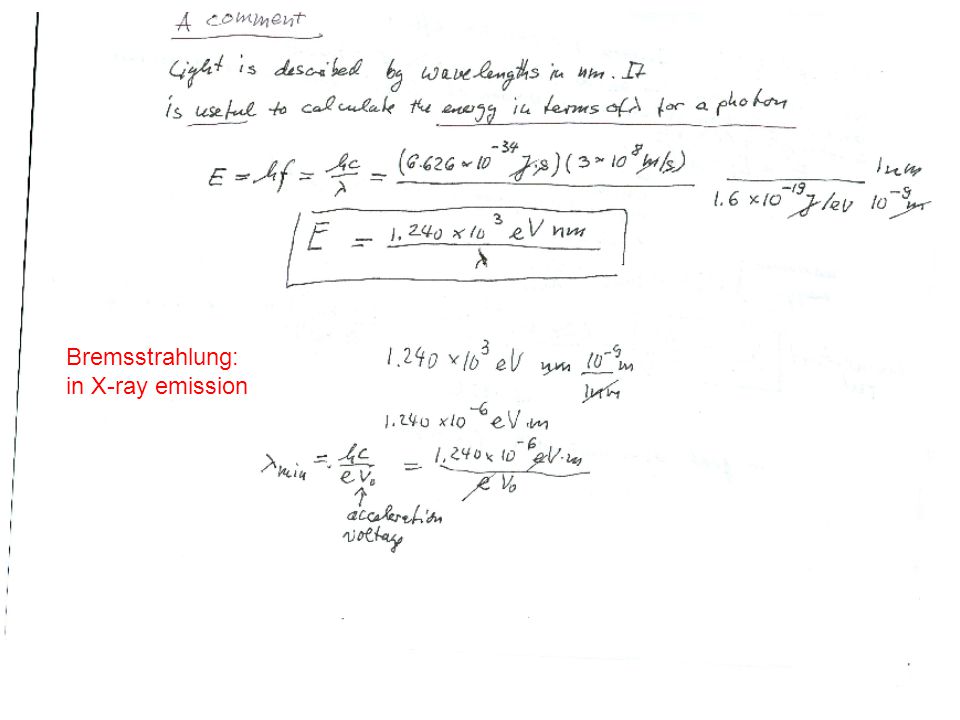 A comment
Light is described by wavelengths in nm. It
is useful to calculate the energy in terms of λ for a photon
E = hf = hc/λ = (6.626 × 10^-34 J·s)(3 × 10^8 m/s) / 1.6 × 10^-19 J/eV 1nm / 10^-9 m
E = 1.240 × 10^3 eV nm / λ
Bremsstrahlung:
in X-ray emission
1.240 × 10^3 eV nm 10^-9 m / 1nm
1.240 × 10^-6 eV·m
λ min = hc / e V₀ = 1.240 × 10^-6 eV·m / e V₀
↑
acceleration
voltage